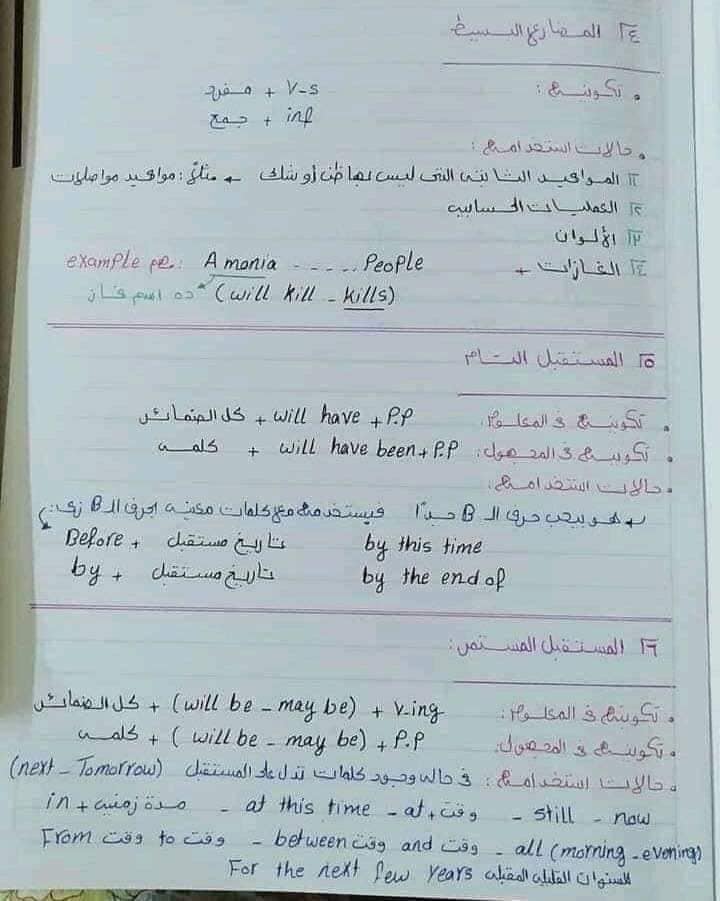 ٤] المضارع البسيط
• تكوينه :
مفرد + V-s
جمع + inf
• حالات استخدامه :
١] المواعيد الثابته التى ليس بها ظن أو شك ← مثلاً : مواعيد مواصلات
٢] العمليات الحسابيه
٣] الألوان
٤] الغازات ←
example : A monia ..... People
(will kill - kills) ده اسم غاز
٥] المستقبل التام
• تكوينه فى المعلوم : كل الضمائر + will have + P.P
• تكوينه فى المجهول : كلمه + will have been + P.P
• حالات استخدامه :
هو بيحب حرف الـ B جدًا فيستخدم مع كلمات معينه بحرف الـ B زى :
Before + تاريخ مستقبل by this time
by + تاريخ مستقبل by the end of
٦] المستقبل المستمر :
• تكوينه فى المعلوم : كل الضمائر + (will be - may be) + V-ing
• تكوينه فى المجهول : كلمه + (will be - may be) + P.P
• حالات استخدامه : فى حاله وجود كلمات تدل على المستقبل (next - Tomorrow)
in + مدة زمنيه - at this time - at + وقت - still - now
From وقت to وقت - between وقت and وقت - all (morning - evening)
For the next few years للسنوات القليله المقبله